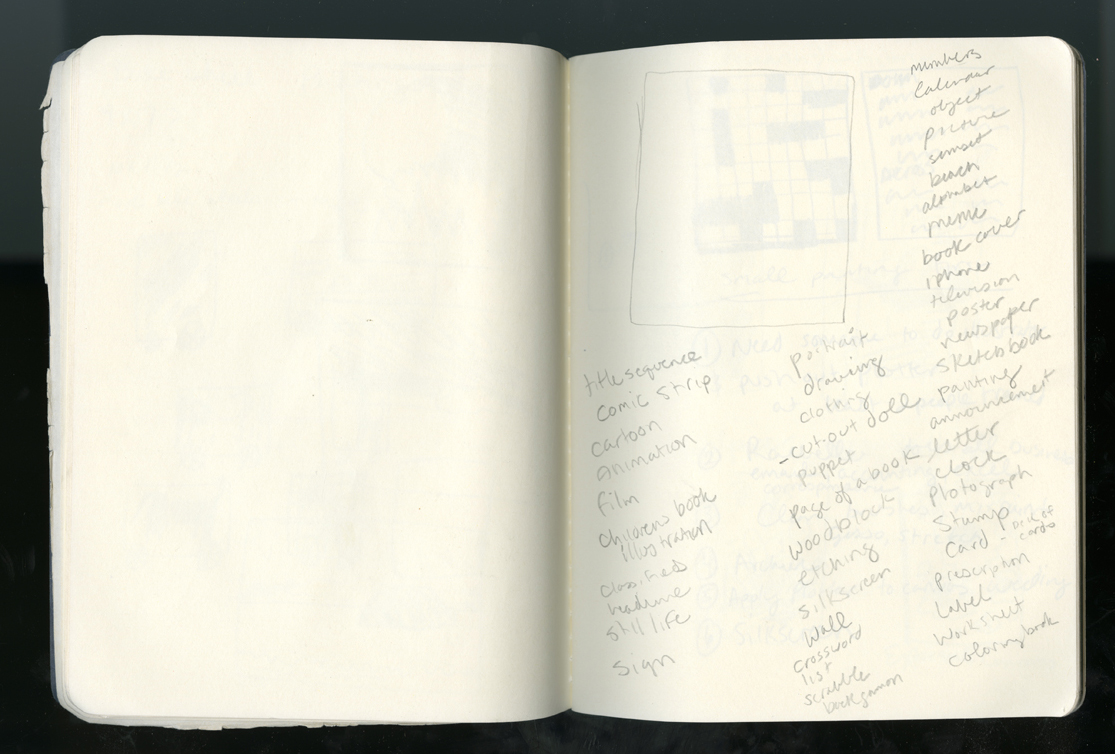 numbers
calendar
object
picture
sunset
beach
alphabet
meme
book cover
iphone
television
poster
newspaper
sketchbook
painting
announcement
letter
clock
photograph
Stamp
Card - deck of cards
prescription
Label
Worksheet
coloringbook
portrait
drawing
clothing
- cut-out doll
puppet
page of a book
woodblock
etching
silkscreen
wall
crossword
list
scrabble
backgamon
title sequence
comic strip
cartoon
animation
film
childrens book
illustration
classifieds
headline
still life
sign
small painting
(1) Need
(2)
(4)
(5) Apply
(6)